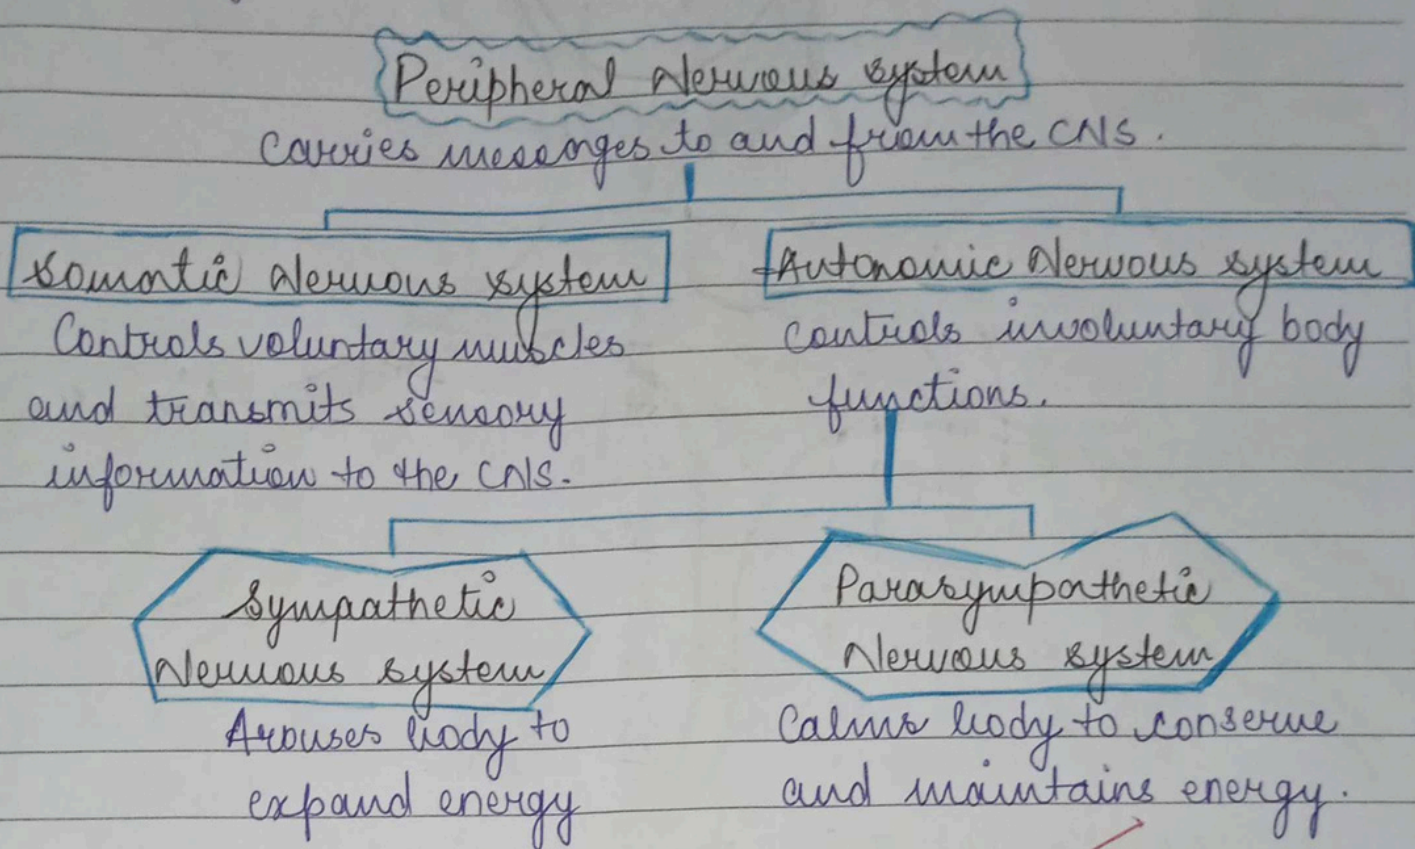 Peripheral Nervous system
Carries messages to and from the CNS.
Somatic Nervous system
Autonomic Nervous system
Controls voluntary muscles
and transmits sensory
information to the CNS.
controls involuntary body
functions.
Sympathetic
Nervous system
Arouses body to
expand energy
Parasympathetic
Nervous system
Calms body to conserve
and maintains energy.